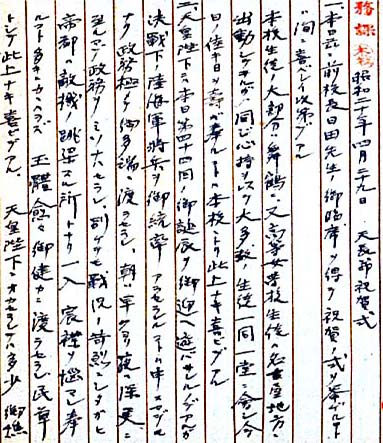 務課 昭和二十年四月二十九日 天長節祝賀式
一、本日茲ニ前校長日田先生ノ御臨席ヲ得テ祝賀ノ式ヲ挙ゲル
ノ同ニ喜ベシイ次第デアル
本校生徒ノ大部分ハ舞鶴ニ又高等女学校生徒ハ名古屋地方ニ
出動シテヰルガ同ジ心持ヲ以テ大多数ノ生徒一同一堂ニ会シ今
日ノ佳キ日ヲ寿ギ奉ルコトハ本校トシテ此上ナキ喜ビデアル
二、天皇陛下ニハ本日第四十四回ノ御誕辰ヲ御迎ヘ遊バサレルノデアルガ
決戦下ノ陸海軍将兵ヲ御統率アラセラレルコトハ申スマデモ
ナク政務極メテ御多端ニ渡ラセラレ朝ハ早クヨリ夜ハ深更ニ
至ルマデ政務ヲミソナハセラレ別ケテモ戦況ノ苛烈トシタガヒ
帝都ハ敵機ノ跳梁スル所トナリ一入宸襟ヲ悩マシ奉
ルコト多キニカヽハラズ玉体愈々御健カニ渡ラセラレ民草
トシテ此上ナキ喜ビデアル。天皇陛下ニオカセラレテハ多少御憔